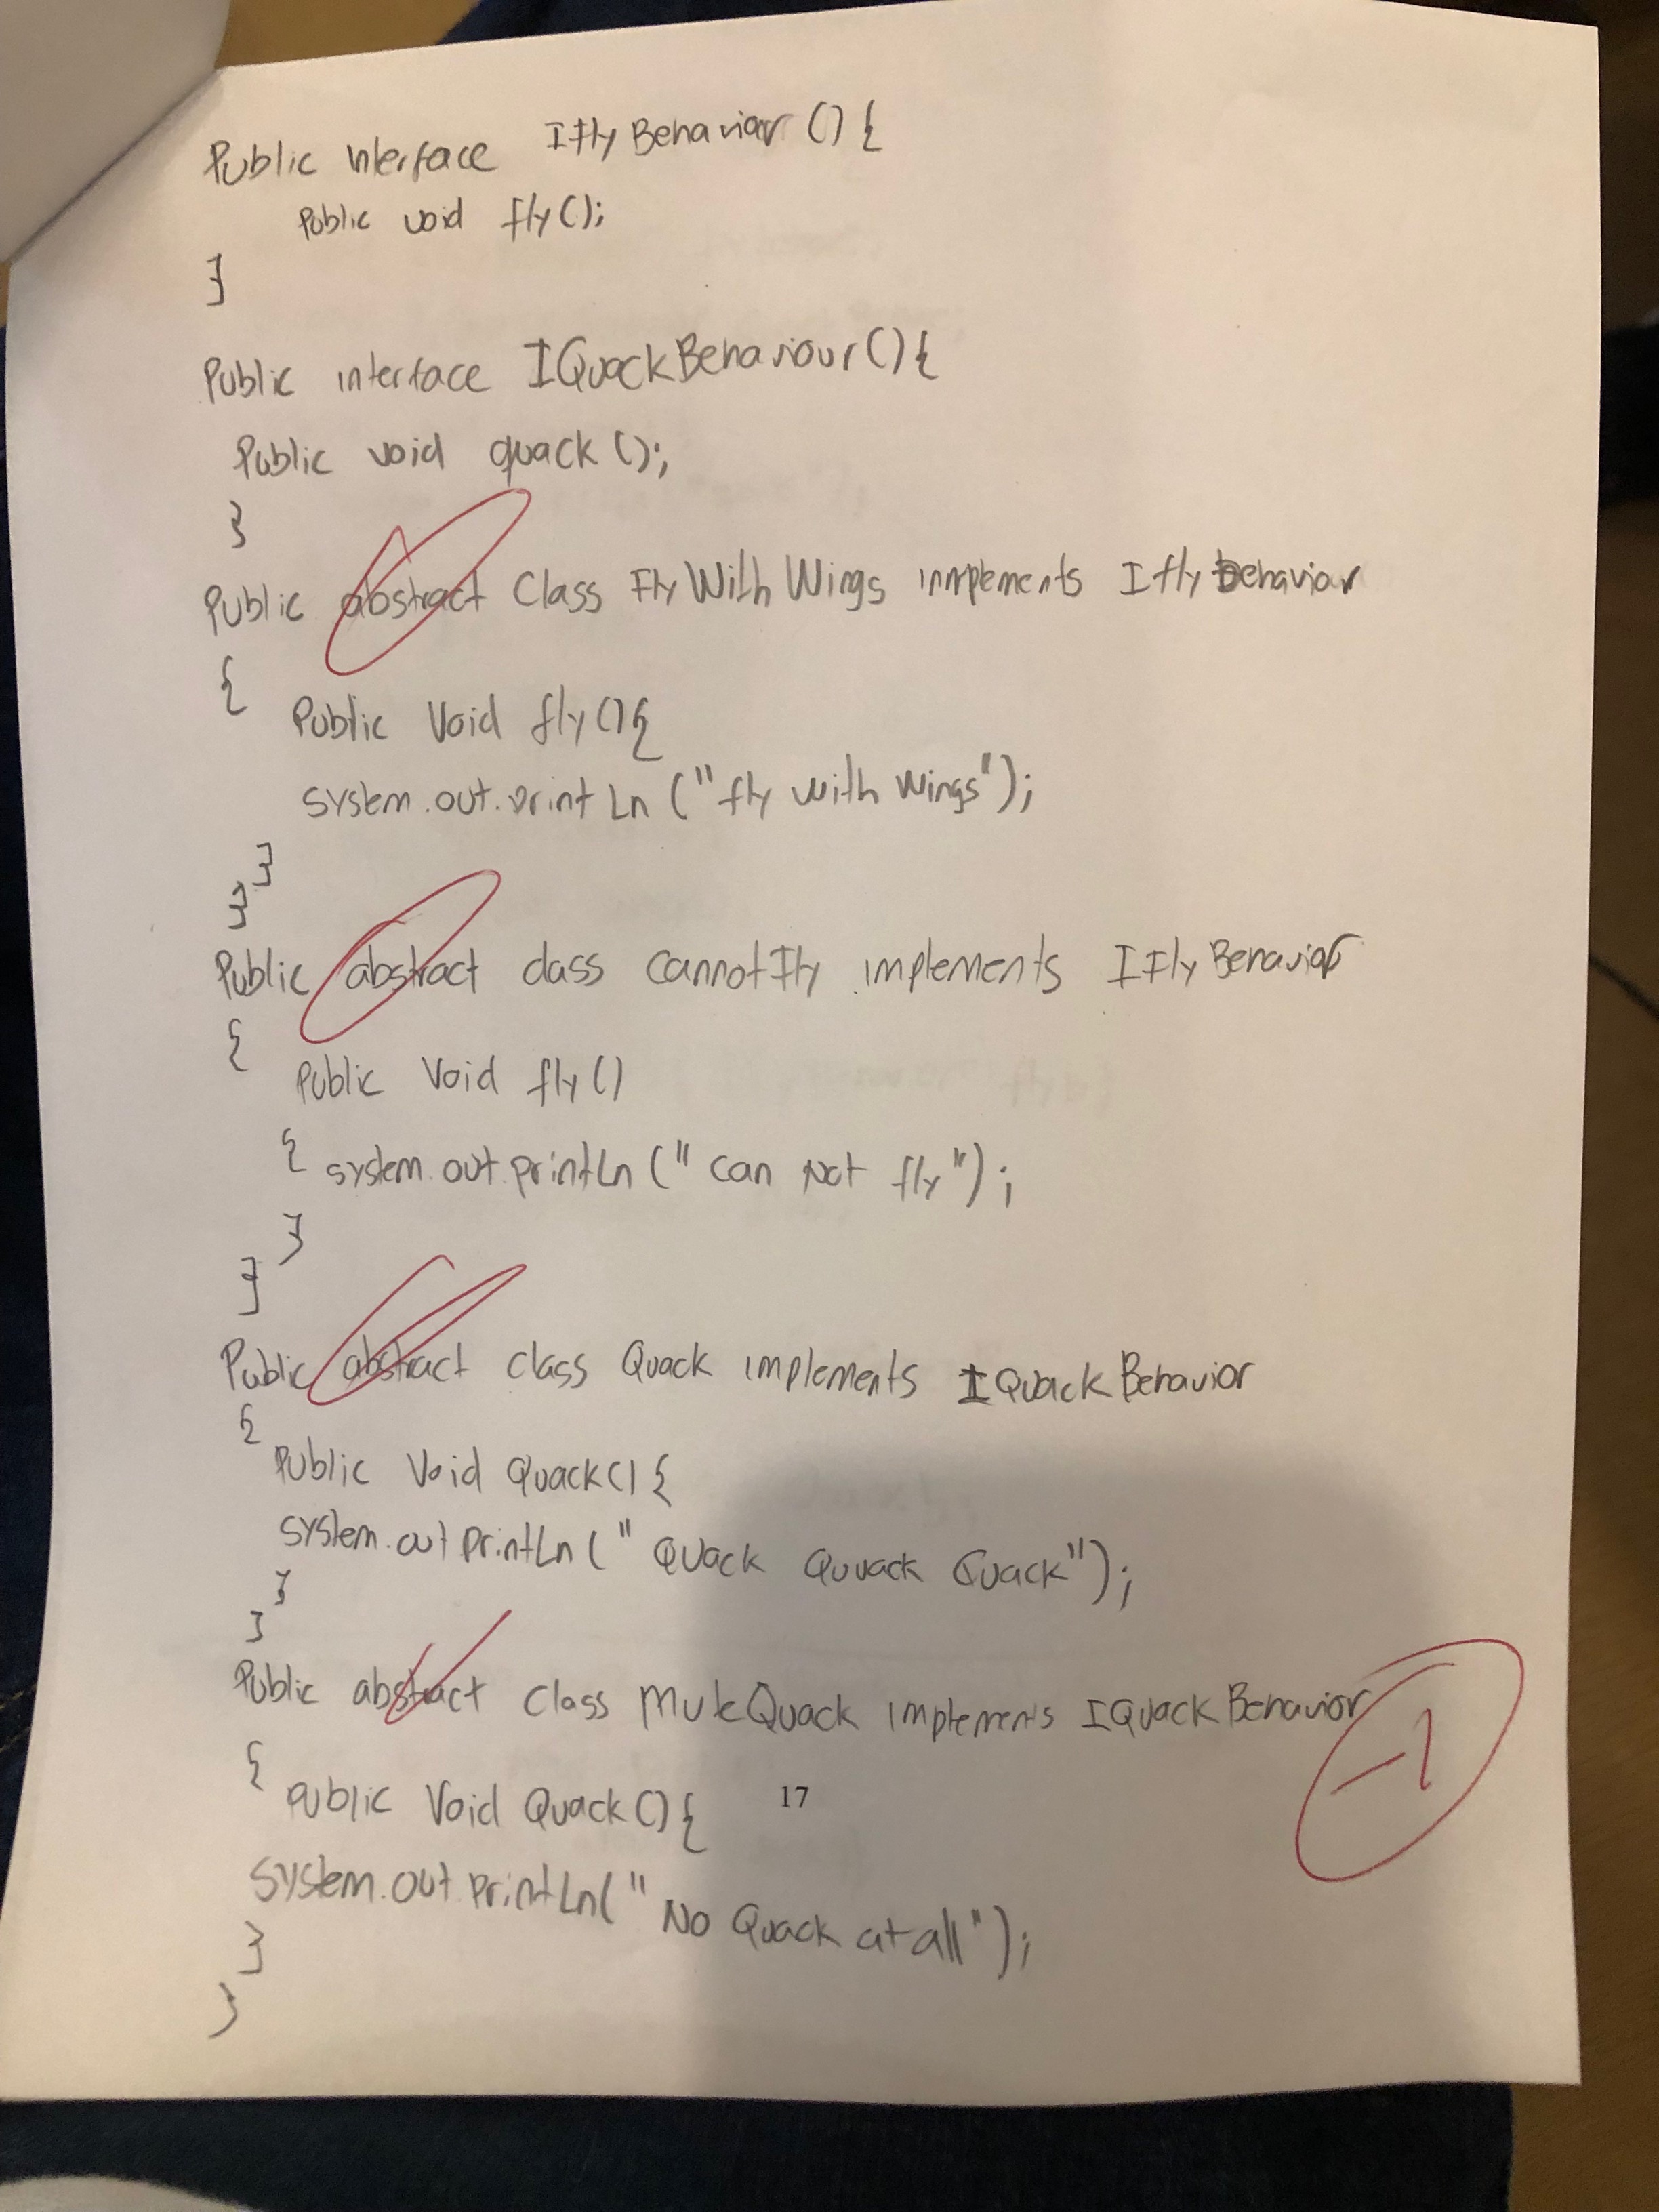 Public interface IFly Behavior () {
Public void fly();
}
Public interface IQuackBehaviour(){
Public void quack();
}
Public abstract Class Fly With Wings implements I fly behavior
{
Public Void fly(){
system.out.print Ln ("fly with Wings");
}
}
Public abstract class cannotFly implements IFly Behavior
{
Public Void fly()
{ system.out.printLn (" can Not fly");
}
}
Public abstract class Quack implements IQuack Behavior
{
Public Void Quack() {
system.out printLn (" Quack Quack Quack");
}
}
Public abstract Class MuteQuack implements IQuack Behavior
-1
{ public Void Quack(){
17
System.out printLn(" No Quack at all");
}
}